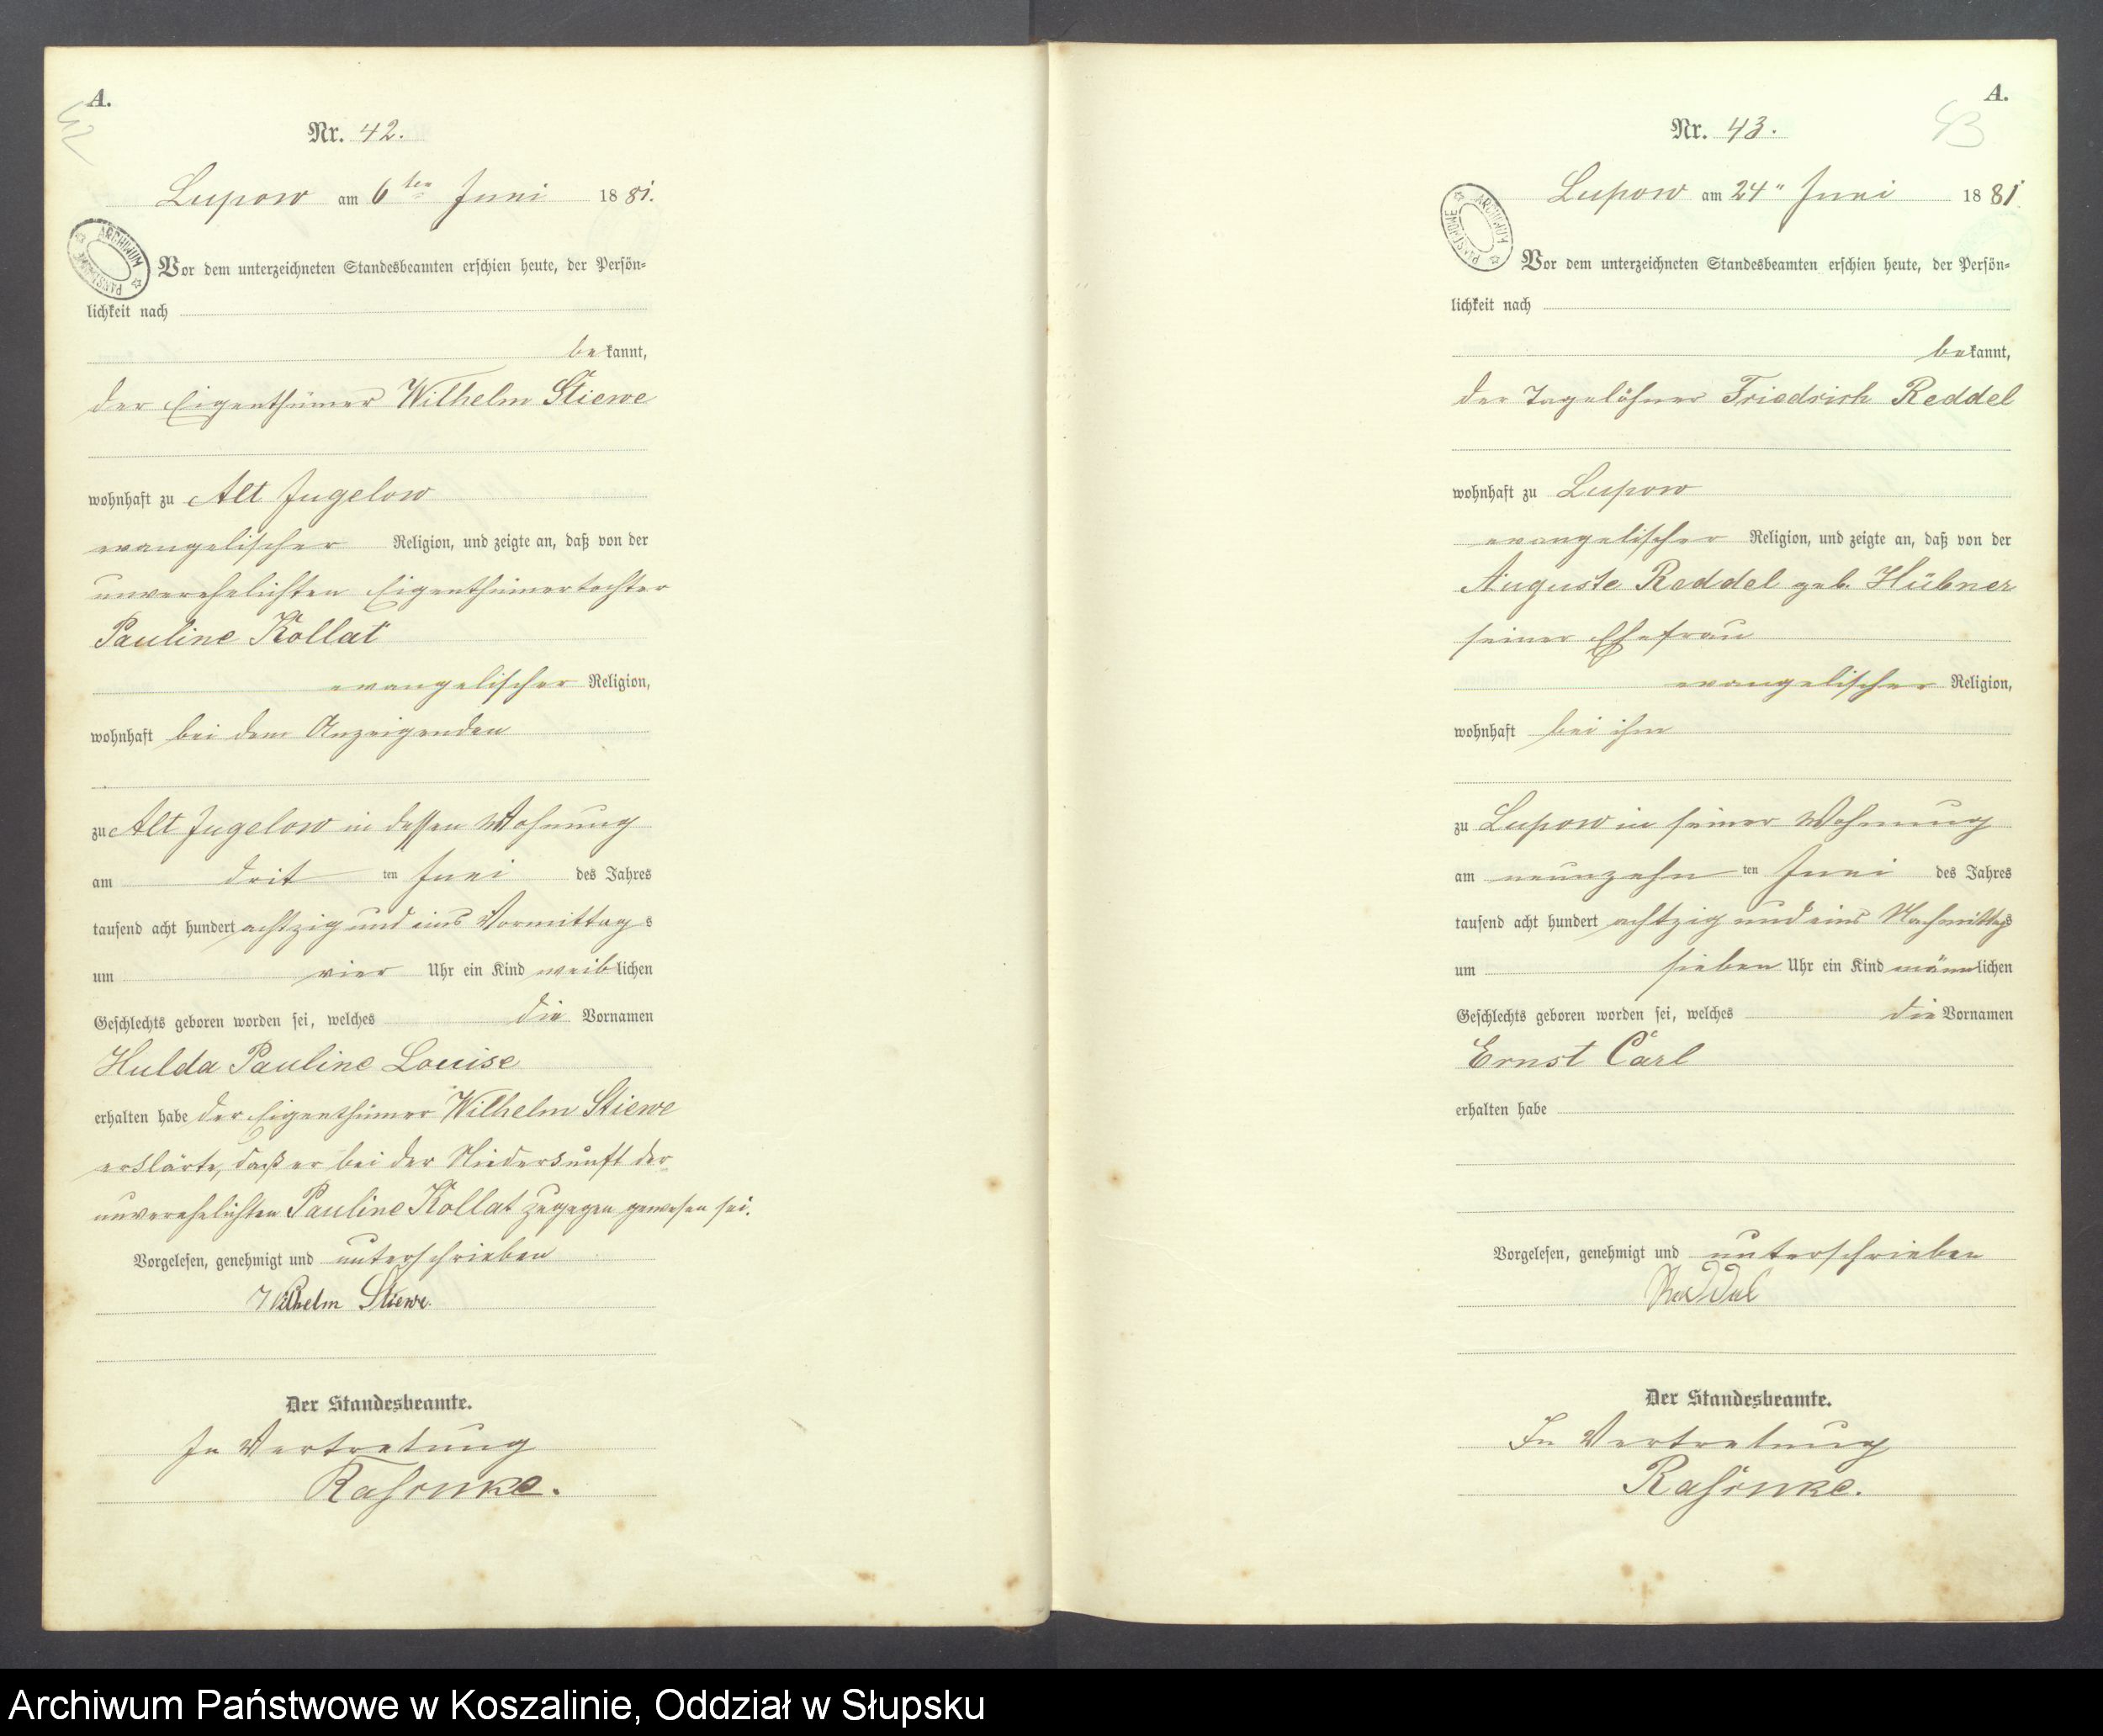 A.
42
Nr. 42.
Lupow am 6ten Juni 1881.
ARCHIWUM PAŃSTWOWE
Vor dem unterzeichneten Standesbeamten erschien heute, der Persön-
lichkeit nach
bekannt,
der Eigenthümer Wilhelm Stiewe
wohnhaft zu Alt Jugelow
evangelischer Religion, und zeigte an, daß von der
unverehelichten Eigenthümertochter
Pauline Kollat
evangelischer Religion,
wohnhaft bei dem Anzeigenden
zu Alt Jugelow in dessen Wohnung
am dritten Juni des Jahres
tausend acht hundert achtzig und eins Vormittags
um vier Uhr ein Kind weiblichen
Geschlechts geboren worden sei, welches die Vornamen
Hulda Pauline Louise
erhalten habe der Eigenthümer Wilhelm Stiewe
erklärte, daß er bei der Niederkunft der
unverehelichten Pauline Kollat zugegen gewesen sei.
Vorgelesen, genehmigt und unterschrieben
Wilhelm Stiewe.
Der Standesbeamte.
In Vertretung
A.
43
Nr. 43.
Lupow am 24" Juni 1881
ARCHIWUM PAŃSTWOWE
Vor dem unterzeichneten Standesbeamten erschien heute, der Persön-
lichkeit nach
bekannt,
der Tagelöhner Friedrich Reddel
wohnhaft zu Lupow
evangelischer Religion, und zeigte an, daß von der
Auguste Reddel geb. Hübner
seiner Ehefrau
evangelischer Religion,
wohnhaft bei ihm
zu Lupow in seiner Wohnung
am neunzehnten Juni des Jahres
tausend acht hundert achtzig und eins Nachmittags
um sieben Uhr ein Kind männlichen
Geschlechts geboren worden sei, welches die Vornamen
Ernst Carl
erhalten habe
Vorgelesen, genehmigt und unterschrieben
Reddel
Der Standesbeamte.
In Vertretung
Archiwum Państwowe w Koszalinie, Oddział w Słupsku